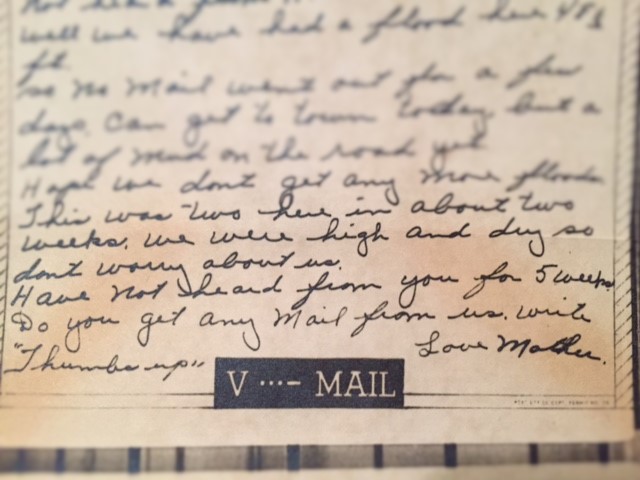 well we have had a flood here 48½
ft.
so no mail went out for a few
days. Can get to town today but a
lot of mud on the road yet
Hope we dont get any more floods
This was two here in about two
weeks. we were high and dry so
dont worry about us.
Have not heard from you for 5 weeks
Do you get any mail from us. write
Love Mother.
"Thumbs up"
V ...- MAIL